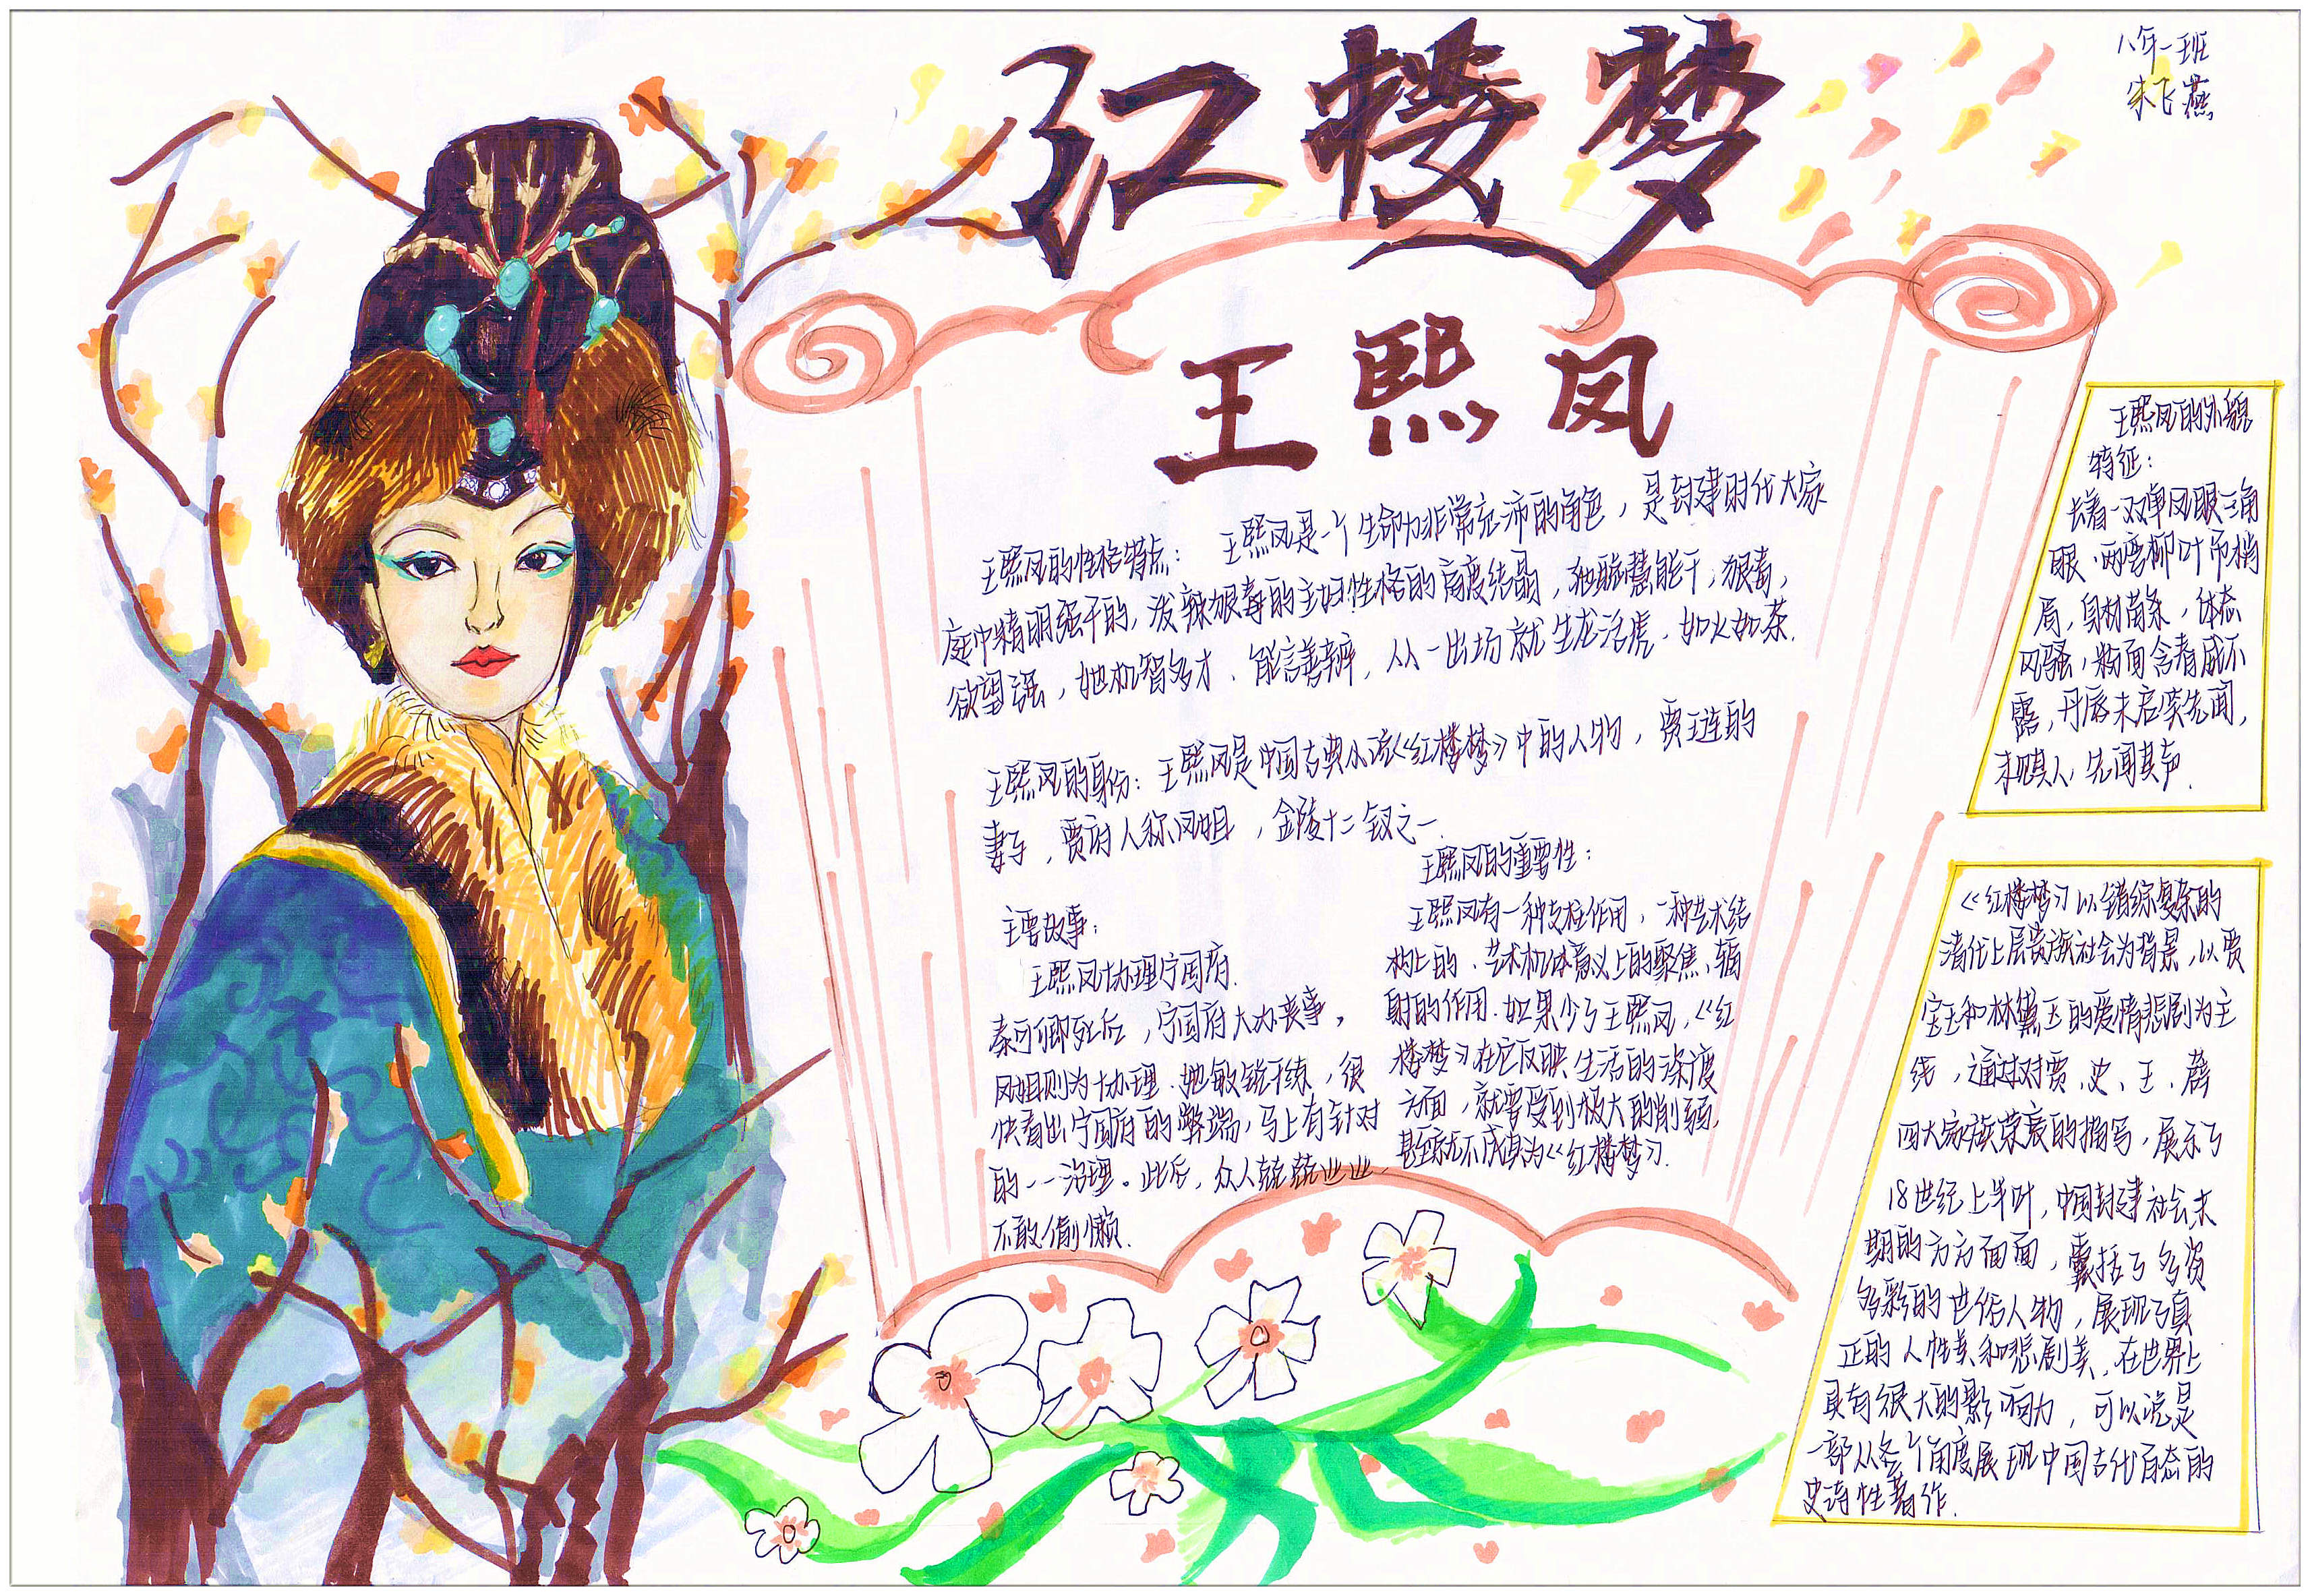 红楼梦
八年一班
朱飞燕
王熙凤
王熙凤的性格特点： 王熙凤是一个生命力非常充沛的角色，是封建时代大家
庭中精明强干的，泼辣狠毒的主妇性格的高度结晶，她聪慧能干，狠毒，
欲望强，她机智多才、能言善辩，从一出场就生龙活虎、如火如荼.
王熙凤的身份：王熙凤是中国古典小说《红楼梦》中的人物，贾琏的
妻子，贾府人称凤姐，金陵十二钗之一.
主要故事：
王熙凤协理宁国府.
秦可卿死后，宁国府大办丧事，
凤姐则为协理.她敏锐干练，很
快看出宁国府的弊端，马上有针对
的一一治理。此后，众人兢兢业业，
不敢偷懒.
王熙凤的重要性：
王熙凤有一种支柱作用，一种艺术结
构上的、艺术机体意义上的聚焦、辐
射的作用.如果少了王熙凤，《红
楼梦》在它反映生活的深度
方面，就要受到极大的削弱，
甚至就不成其为《红楼梦》.
王熙凤的外貌
特征：
长着一双单凤眼三角
眼、两弯柳叶吊梢
眉，身材苗条，体态
风骚，粉面含春威不
露，丹唇未启笑先闻，
未见其人，先闻其声.
《红楼梦》以错综复杂的
清代上层贵族社会为背景，以贾
宝玉和林黛玉的爱情悲剧为主
线，通过对贾、史、王、薛
四大家族荣衰的描写，展示了
18世纪上半叶，中国封建社会末
期的方方面面，囊括了多姿
多彩的世俗人物，展现了真
正的人性美和悲剧美，在世界上
具有很大的影响力，可以说是
一部从各个角度展现中国古代百态的
史诗性著作.